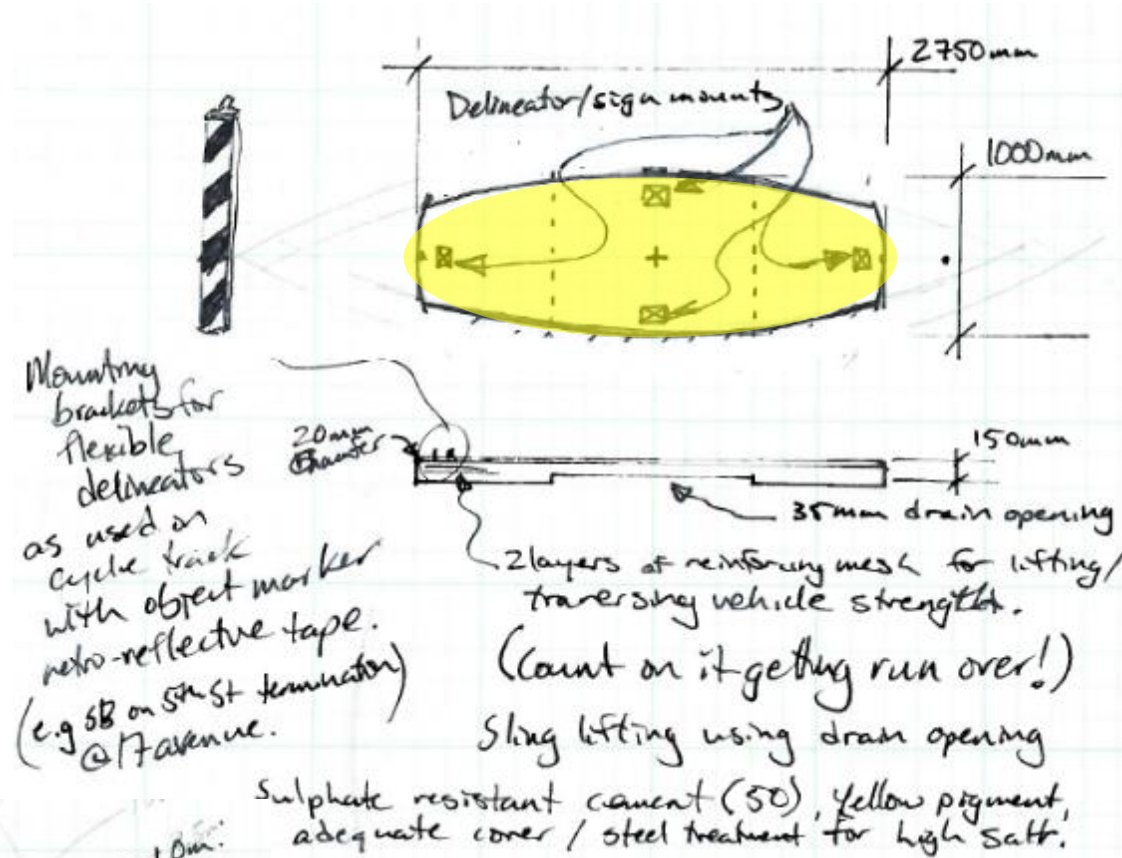 2750mm
Delineator/sign mounts
1000mm
Mounting
brackets for
flexible
delineators
as used on
cycle track
with object marker
retro-reflective tape.
(e.g SB on 5th St termination)
@17 avenue.
20mm
Chamfer
150mm
35mm drain opening
2 layers of reinforcing mesh for lifting/
traversing vehicle strength.
(Count on it getting run over!)
Sling lifting using drain opening
Sulphate resistant cement (50), yellow pigment,
adequate cover / steel treatment for high salt.